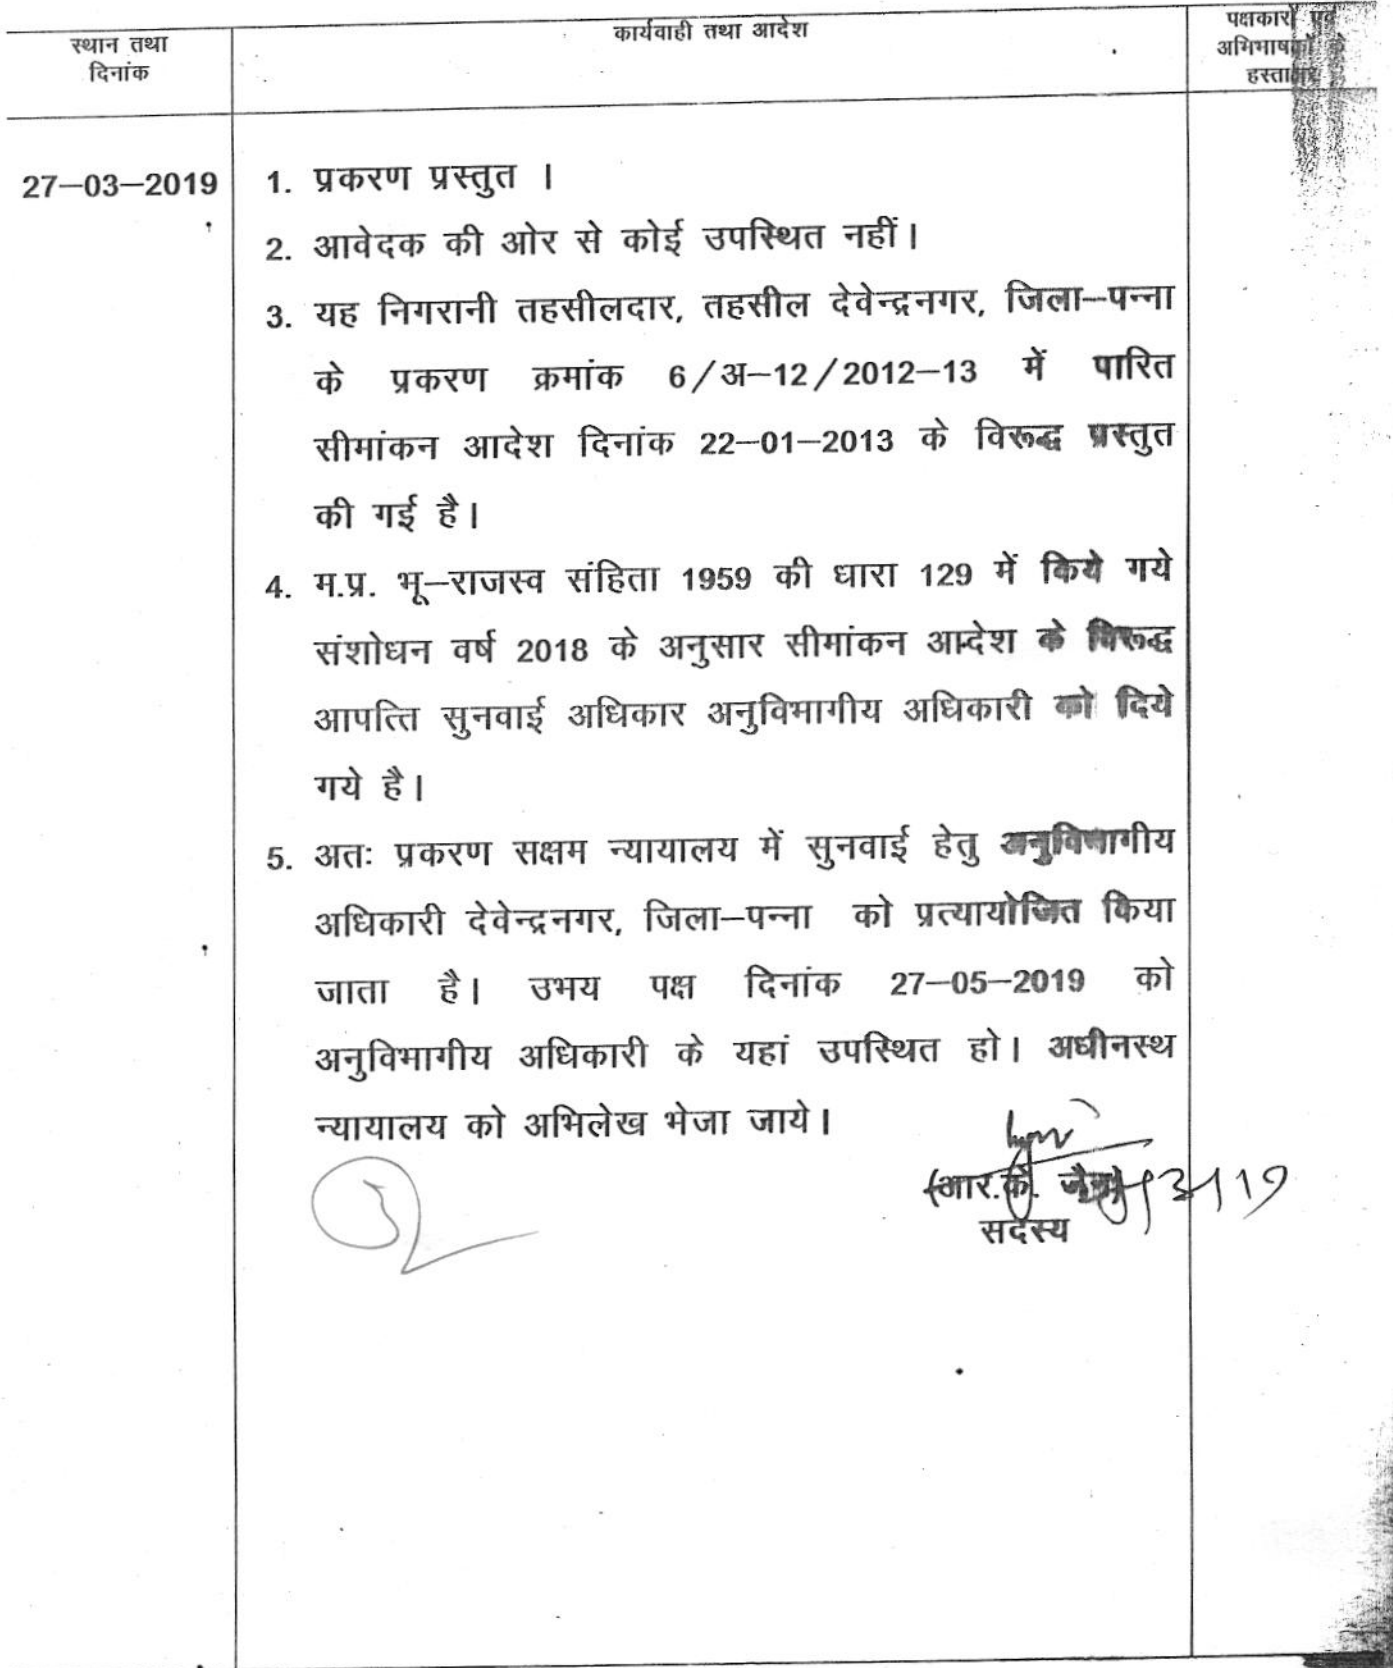 स्थान तथा
दिनांक
कार्यवाही तथा आदेश
पक्षकारों एवं
अभिभाषकों के
हस्ताक्षर
27–03–2019
1. प्रकरण प्रस्तुत ।
2. आवेदक की ओर से कोई उपस्थित नहीं।
3. यह निगरानी तहसीलदार, तहसील देवेन्द्रनगर, जिला–पन्ना
के प्रकरण क्रमांक 6/अ–12/2012–13 में पारित
सीमांकन आदेश दिनांक 22–01–2013 के विरूद्ध प्रस्तुत
की गई है।
4. म.प्र. भू–राजस्व संहिता 1959 की धारा 129 में किये गये
संशोधन वर्ष 2018 के अनुसार सीमांकन आदेश के विरूद्ध
आपत्ति सुनवाई अधिकार अनुविभागीय अधिकारी को दिये
गये है।
5. अतः प्रकरण सक्षम न्यायालय में सुनवाई हेतु अनुविभागीय
अधिकारी देवेन्द्रनगर, जिला–पन्ना को प्रत्यायोजित किया
जाता है। उभय पक्ष दिनांक 27–05–2019 को
अनुविभागीय अधिकारी के यहां उपस्थित हो। अधीनस्थ
न्यायालय को अभिलेख भेजा जाये।
(आर.के. जैन)
सदस्य